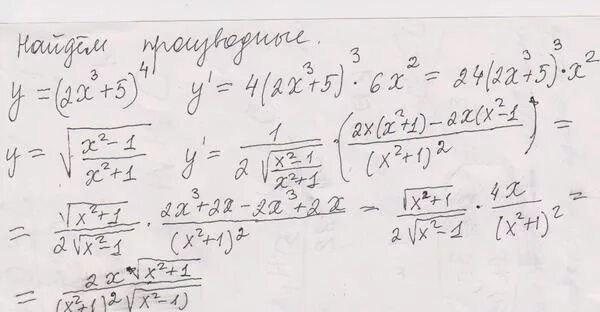 Найдём производные.
y = (2x³+5)⁴ y' = 4(2x³+5)³ · 6x² = 24(2x³+5)³ · x²
y = √((x²-1)/(x²+1)) y' = 1/(2√((x²-1)/(x²+1))) · ((2x(x²+1) - 2x(x²-1)/(x²+1)²) =
= √(x²+1)/(2√(x²-1)) · (2x³+2x-2x³+2x)/(x²+1)² = √(x²+1)/(2√(x²-1)) · 4x/(x²+1)² =
= (2x · √(x²+1))/((x²+1)² √(x²-1))